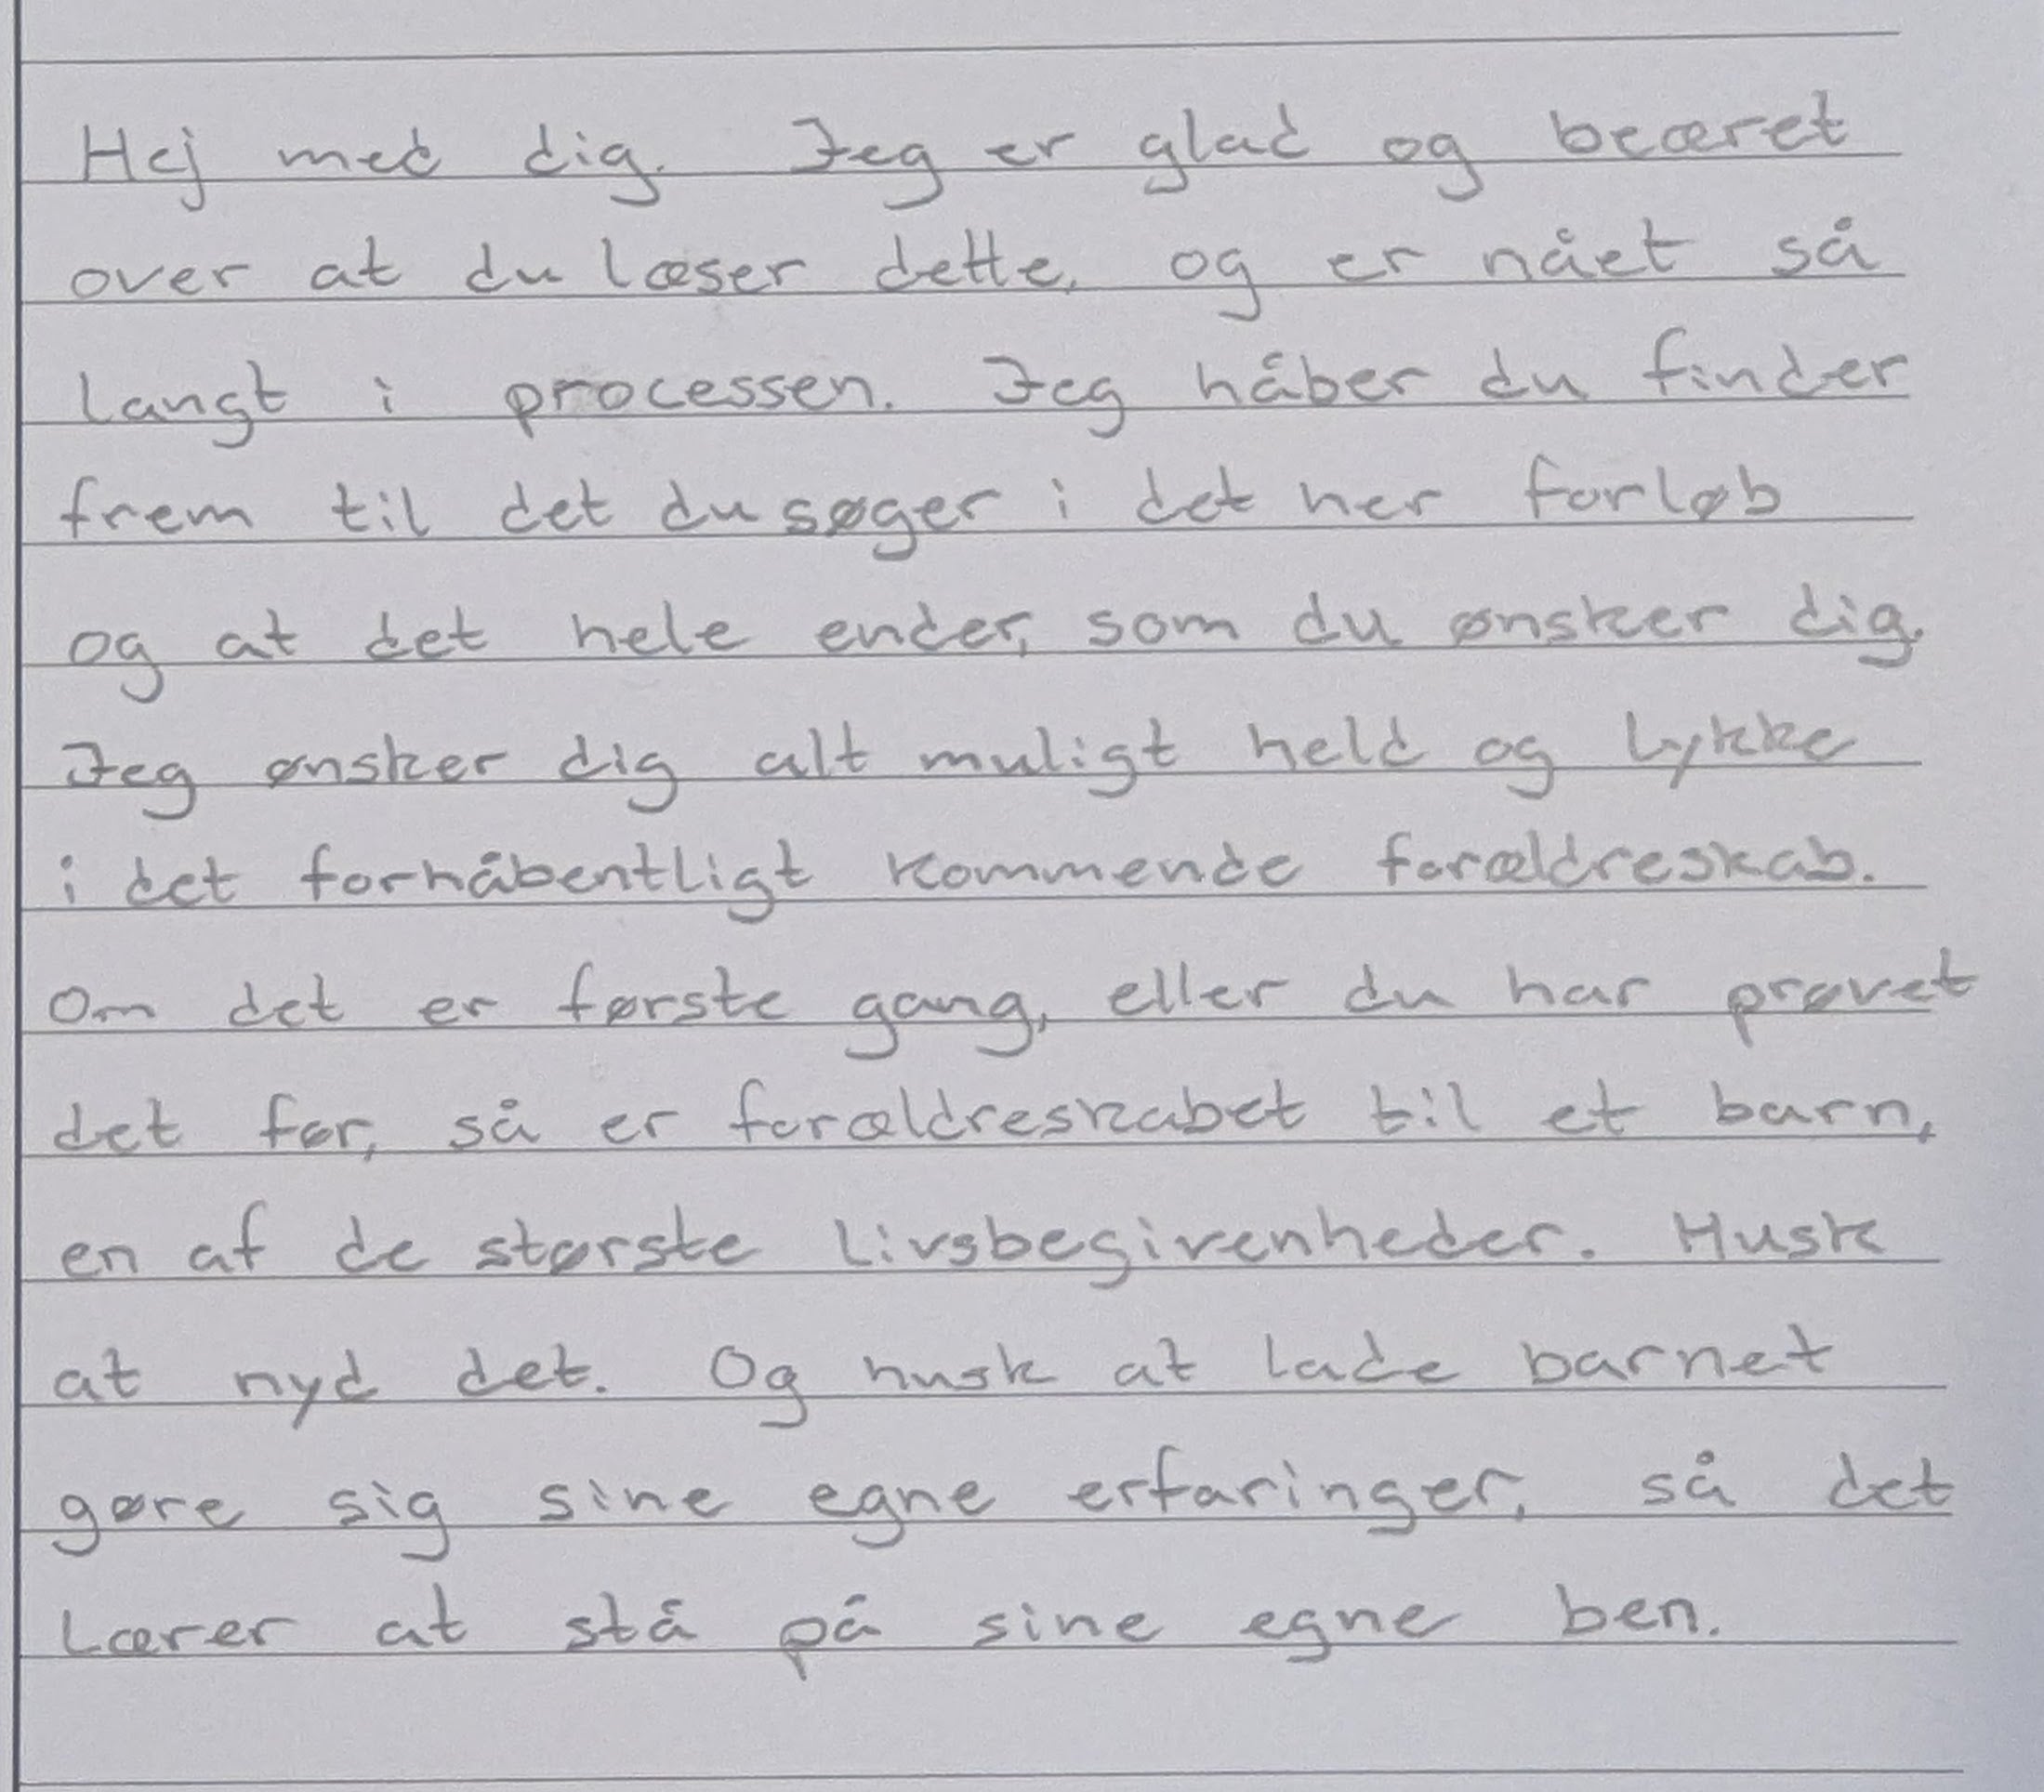 Hej med dig. Jeg er glad og beæret
over at du læser dette, og er nået så
langt i processen. Jeg håber du finder
frem til det du søger i det her forløb
og at det hele ender, som du ønsker dig.
Jeg ønsker dig alt muligt held og lykke
i det forhåbentligt kommende forældreskab.
Om det er første gang, eller du har prøvet
det før, så er forældreskabet til et barn,
en af de største livsbegivenheder. Husk
at nyd det. Og husk at lade barnet
gøre sig sine egne erfaringer, så det
lærer at stå på sine egne ben.